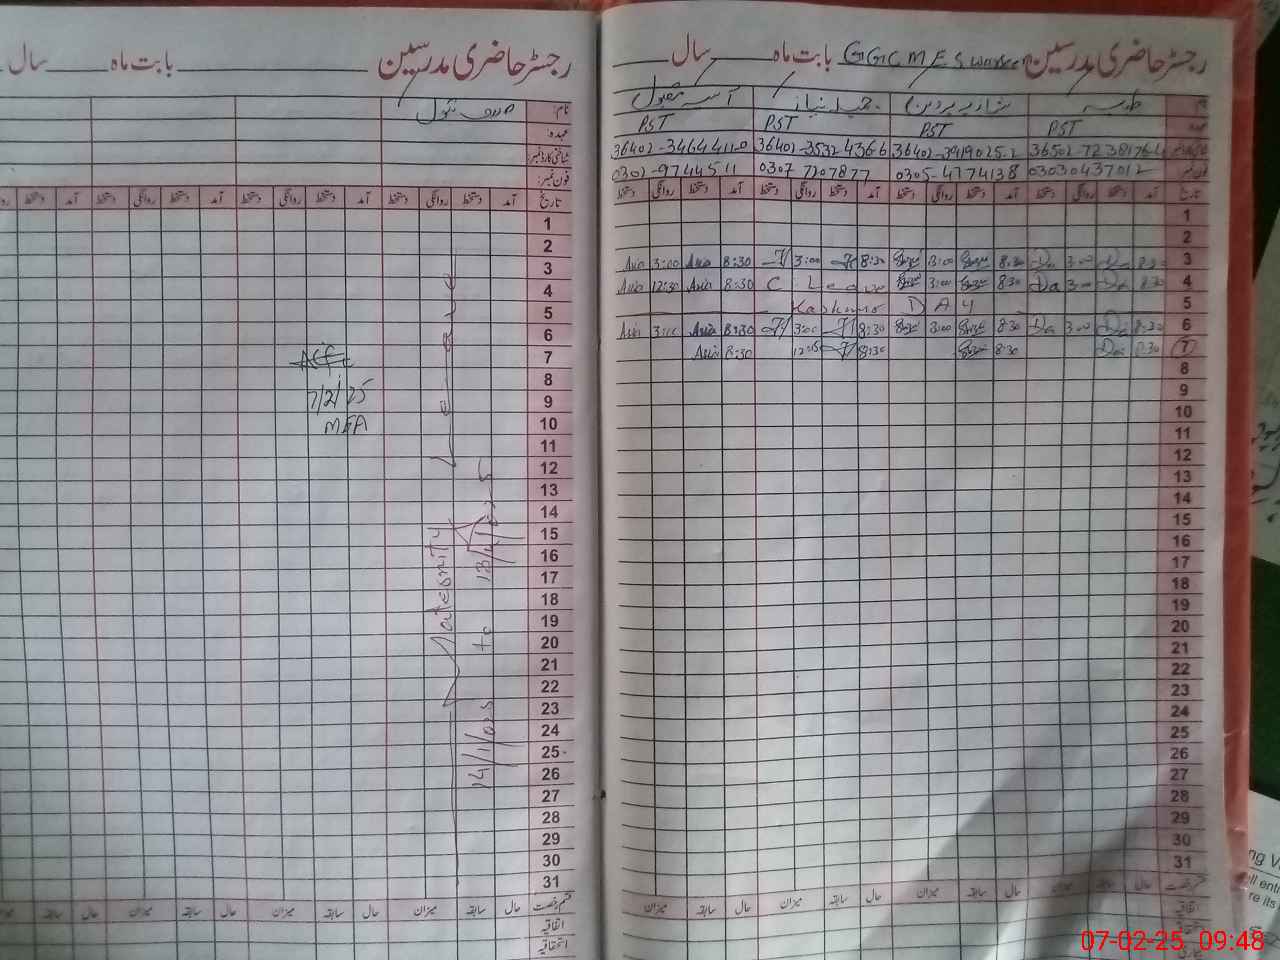 رجسٹر حاضری مدرسین GGCMES بابت ماہ سال
نام:
شازیہ پروین
جمیلہ نیاز
آسیہ مقبول
عہدہ:
PST
PST
PST
PST
36402-3919025-2
36402-3532436-6
36402-3464411-0
فون نمبر:
03030437012
0305-4174138
0307 7207877
0302-9744511
تاریخ آمد دستخط روانگی دستخط آمد دستخط روانگی دستخط آمد دستخط روانگی دستخط آمد دستخط روانگی دستخط
1
2
3 8:30 3:00 8:30 3:00 8:30 3:00 Asia 8:30 Asia 3:00 Asia
4 8:30 Da 3:00 Da 8:30 3:00 C. Leave 8:30 Asia 12:30 Asia
5 Kashmir DAY
6 8:30 Da 3:00 Da 8:30 3:00 8:30 3:00 8:30 Asia 3:00 Asia
7 8:30 Da 8:30 8:30 12:15 8:30 Asia
8
9
10
11
12
13
14
15
16
17
18
19
20
21
22
23
24
25
26
27
28
29
30
31
قسم رخصت حال سابقہ میزان حال سابقہ میزان حال سابقہ میزان حال سابقہ میزان
اتفاقیہ
رجسٹر حاضری مدرسین بابت ماہ سال
نام:
عہدہ:
شناختی کارڈ نمبر
فون نمبر:
تاریخ آمد دستخط روانگی دستخط آمد دستخط روانگی دستخط آمد دستخط روانگی دستخط آمد دستخط روا
1
2
3
4
5
6
7
8
9
10
11
12
13
14
15
16
17
18
19
20
21
22
23
24
25
26
27
28
29
30
31
Maternity Leave
14/1/025 to 13/4/025
7/2/25
MEA
قسم رخصت حال سابقہ میزان حال سابقہ میزان حال سابقہ میزان حال سابقہ میزان
اتفاقیہ
استحقاقیہ
ng V
ell entr
re its
07-02-25 09:48